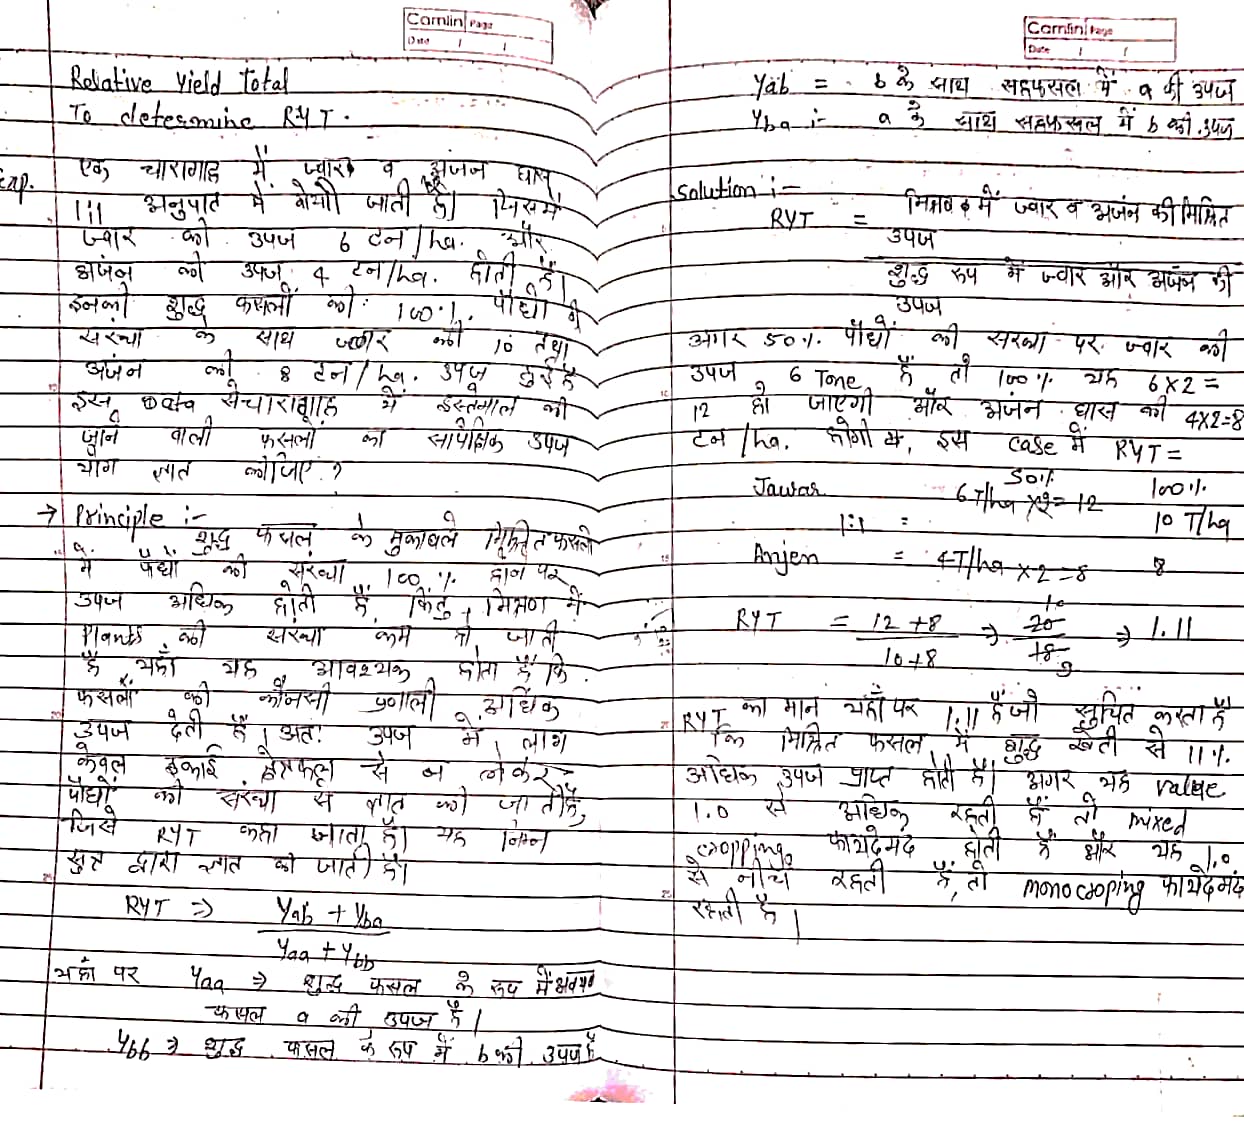 Camlin Page
Date / /
Relative Yield Total
To determine RYT.
Exp. एक चारागाह में ज्वार व अंजन घास
1:1 अनुपात में बोयी जाती है। जिसमें
ज्वार की उपज 6 टन/ha. और
अंजन की उपज 4 टन/ha. होती है।
इनकी शुद्ध फसलों की 100%. पौधों की
संख्या के साथ ज्वार की 10 तथा
अंजन की 8 टन/ha. उपज हुई है
इस Data से चारागाह में इस्तेमाल की
जाने वाली फसलों का सापेक्षिक उपज
योग ज्ञात कीजिए?
→ Principle :-
शुद्ध फसल के मुकाबले मिश्रित फसलो
में पौधों की संख्या 100% होने पर
उपज अधिक होती है, किंतु, मिश्रण में
Plants की संख्या कम हो जाती
है यहाँ यह आवश्यक होता है कि
फसलों की कौनसी प्रणाली अधिक
उपज देती है। अतः उपज में लाभ
केवल इकाई क्षेत्रफल से न लेकर
पौधों की संख्या से ज्ञात की जाती है,
जिसे RYT कहा जाता है। यह निम्न
सूत्र द्वारा ज्ञात की जाती है।
RYT ⇒ Yab + Yba
Yaa + Ybb
यहाँ पर Yaa ⇒ शुद्ध फसल के रूप में
फसल a की उपज है।
Ybb ⇒ शुद्ध फसल के रूप में b की उपज है
Camlin Page
Date / /
Yab = b के साथ सहफसल में a की उपज
Yba :- a के साथ सहफसल में b की उपज
Solution :-
RYT = में ज्वार व अंजन की मिश्रित
उपज
शुद्ध रूप में ज्वार और अंजन की
उपज
अगर 50%. पौधों की संख्या पर ज्वार की
उपज 6 Tone है तो 100% यह 6x2 =
12 हो जाएगी और अंजन घास की 4x2=8
टन/ha. होगी इस case में RYT =
50% 100%
Jawar 6T/ha x2 = 12 10 T/ha
1:1 =
Anjen = 4T/ha x 2 = 8 8
RYT = 12 + 8 ⇒ 20 10 ⇒ 1.11
10+8 18 9
RYT का मान यहाँ पर 1.11 है जो सूचित करता है
कि मिश्रित फसल में शुद्ध खेती से 11%.
अधिक उपज प्राप्त होती है। अगर यह value
1.0 से अधिक रहती है तो mixed
cropping फायदेमंद होती है और यह 1.0
से नीचे रहती है, तो monocroping फायदेमंद
रहती है।